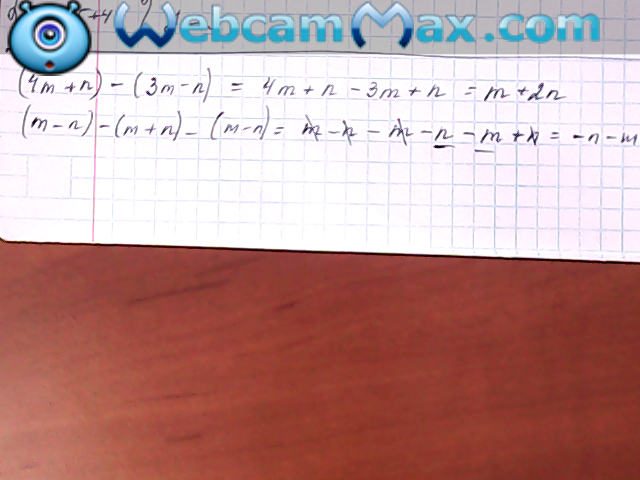 WebcamMax.com
(4m+n) - (3m-n) = 4m+n-3m+n = m+2n
(m-n)-(m+n)-(m-n)= m-n-m-n-m+n=-n-m